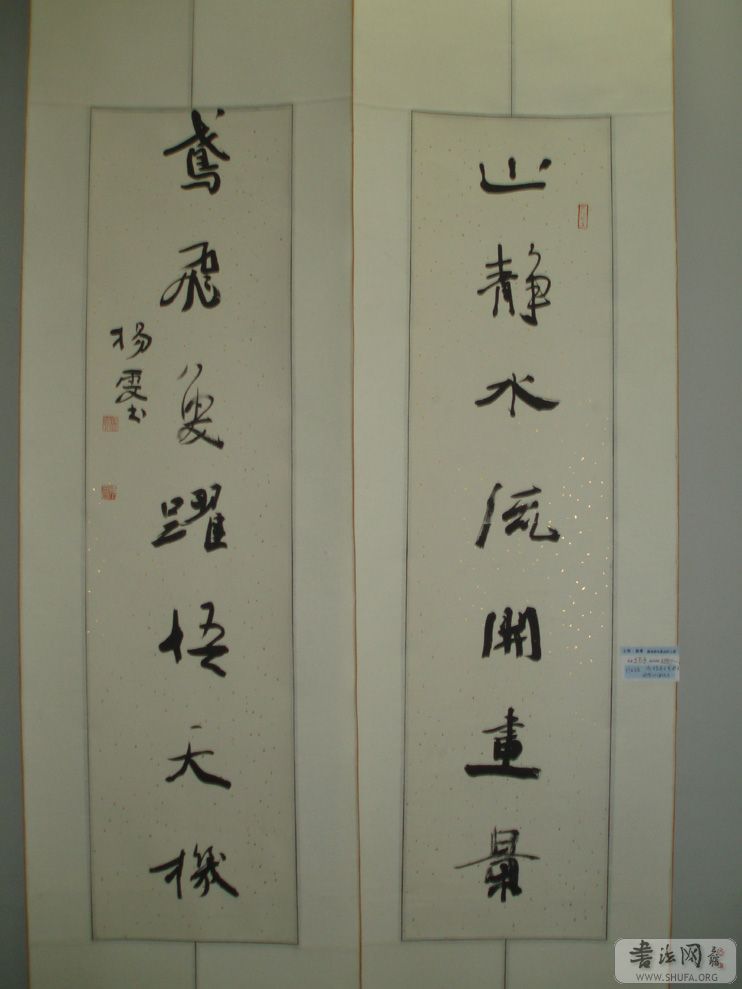 山静水流開畫景
鳶飛魚躍悟天機
楊雯书
书法网
WWW.SHUFA.ORG